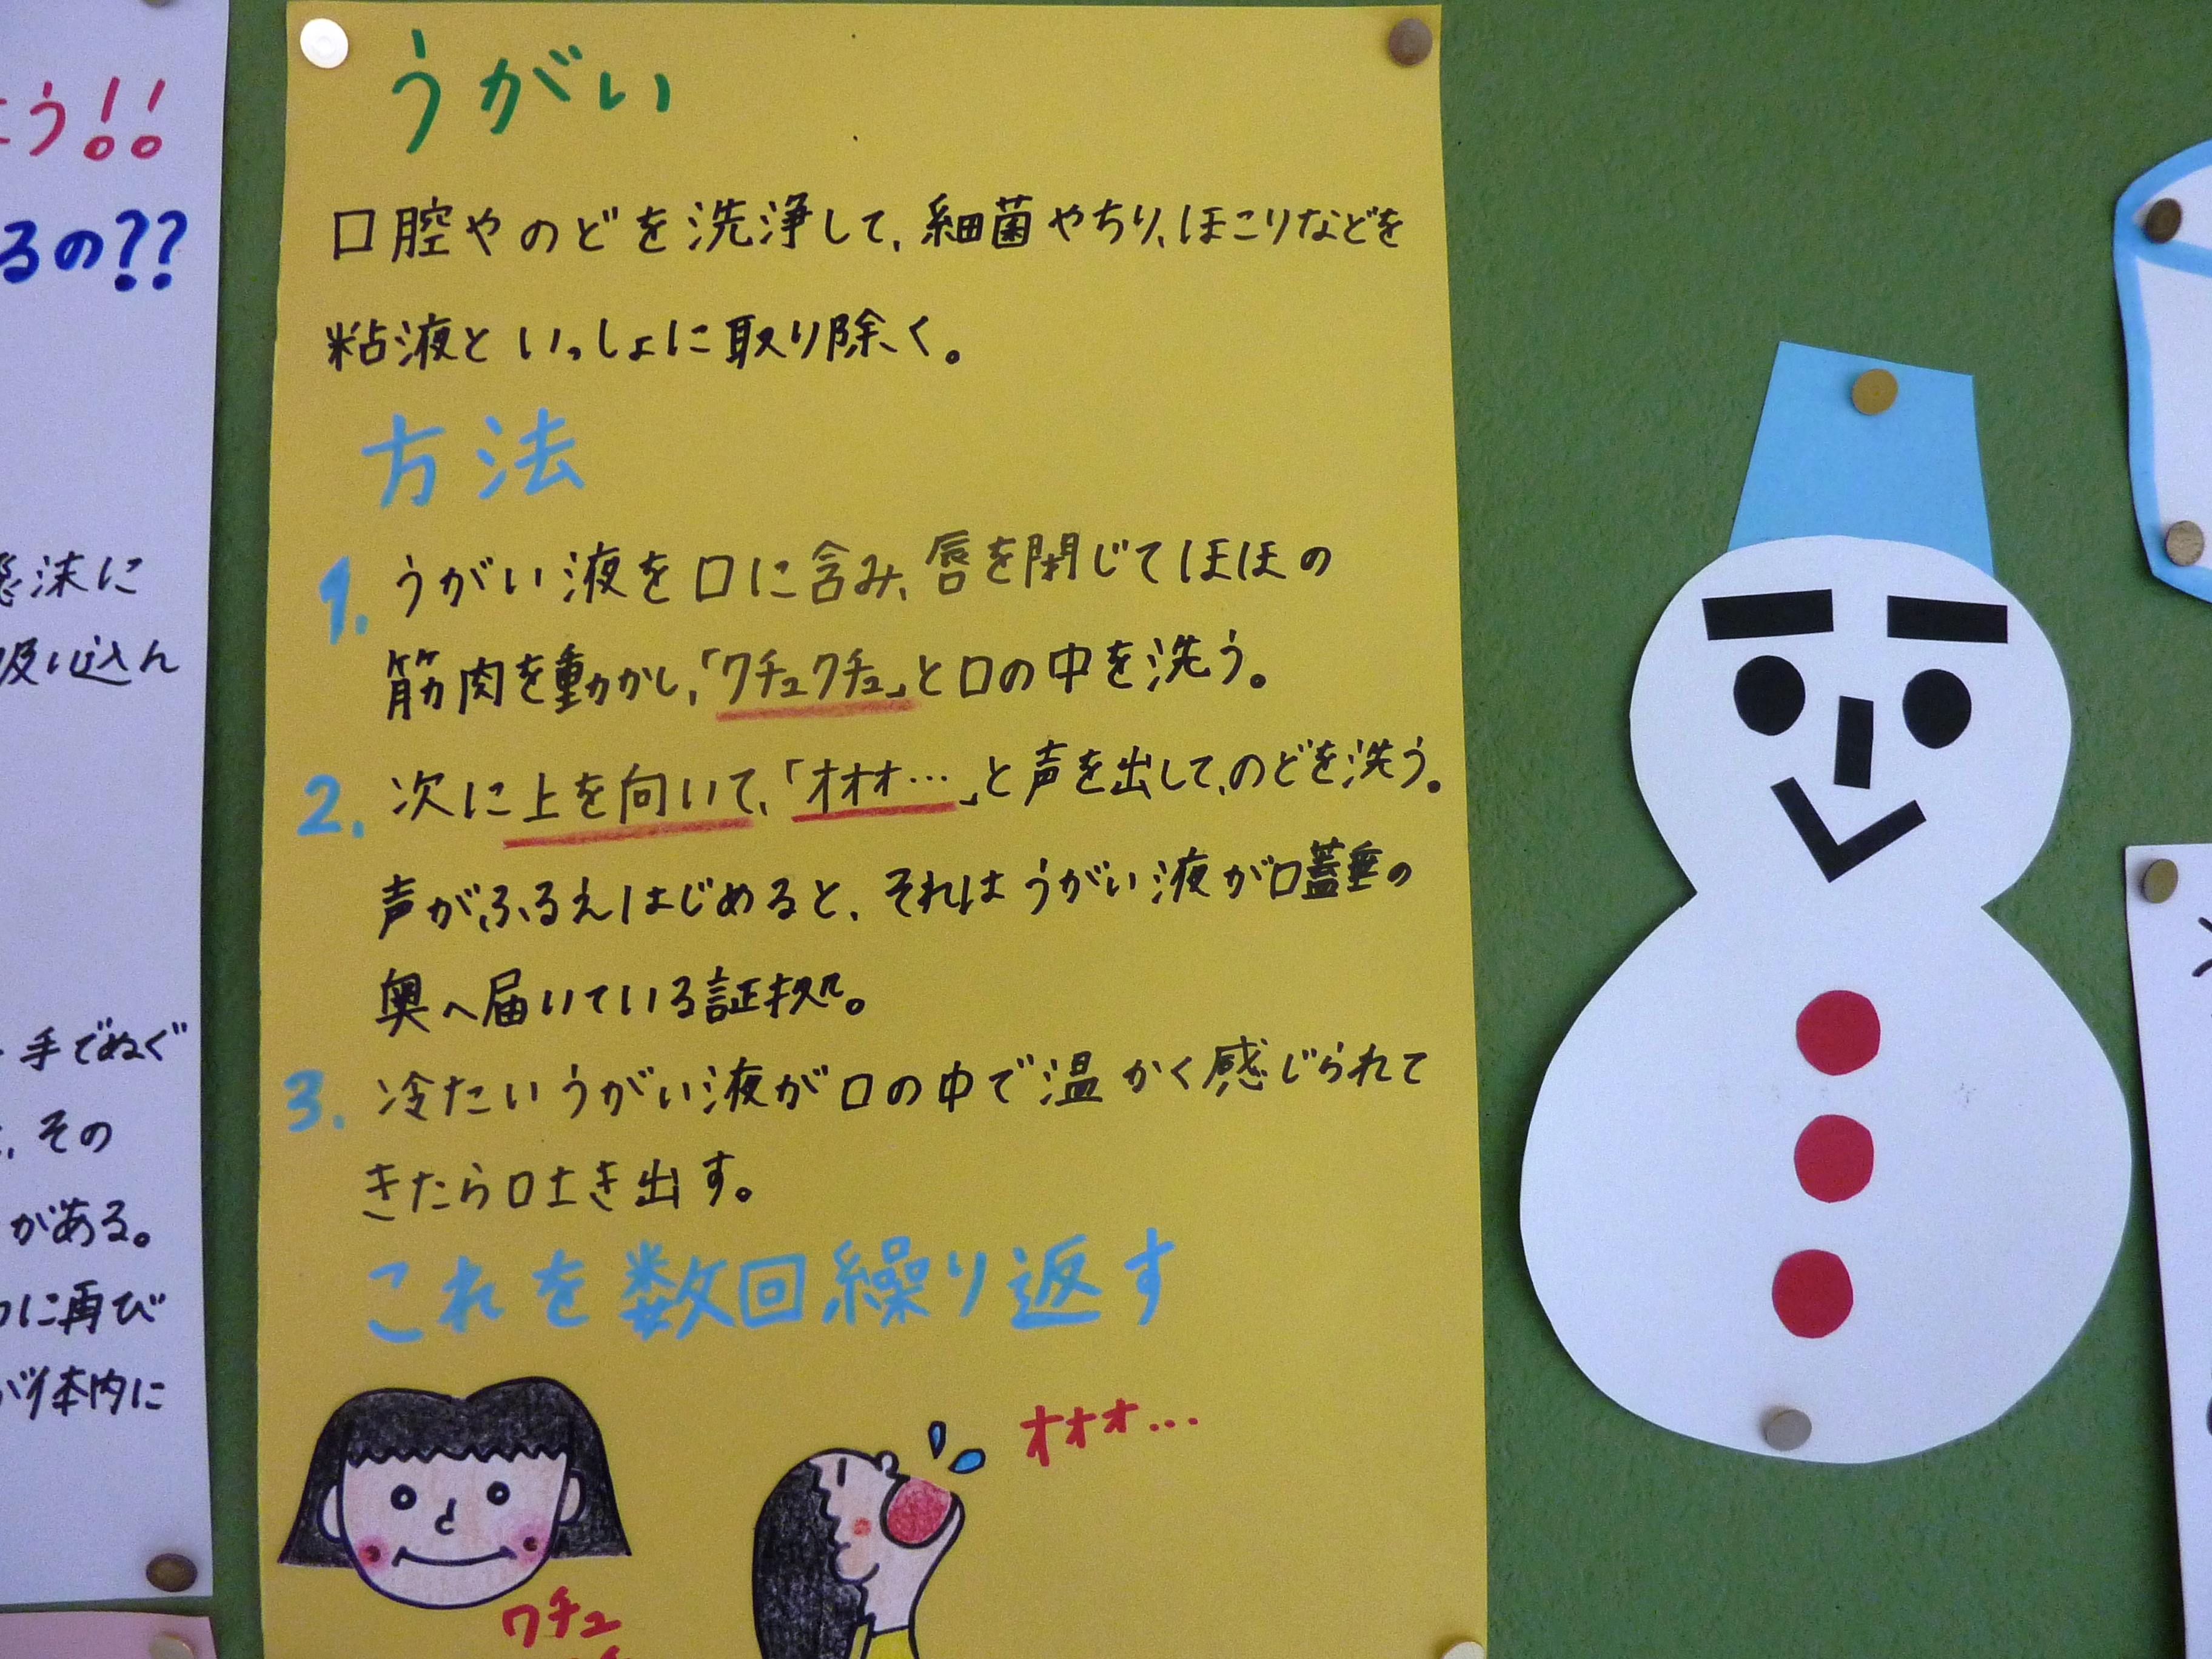 う!!
るの??
沫に
吸い込ん
手でぬぐ
その
がある。
に再び
が体内に
うがい
口腔やのどを洗浄して、細菌やちり、ほこりなどを
粘液といっしょに取り除く。
方法
1. うがい液を口に含み、唇を閉じてほほの
筋肉を動かし、「クチュクチュ」と口の中を洗う。
2. 次に上を向いて、「オオオ…」と声を出して、のどを洗う。
声がふるえはじめると、それはうがい液が口蓋垂の
奥へ届いている証拠。
3. 冷たいうがい液が口の中で温かく感じられて
きたら吐き出す。
これを数回繰り返す
オオオ…
クチュ